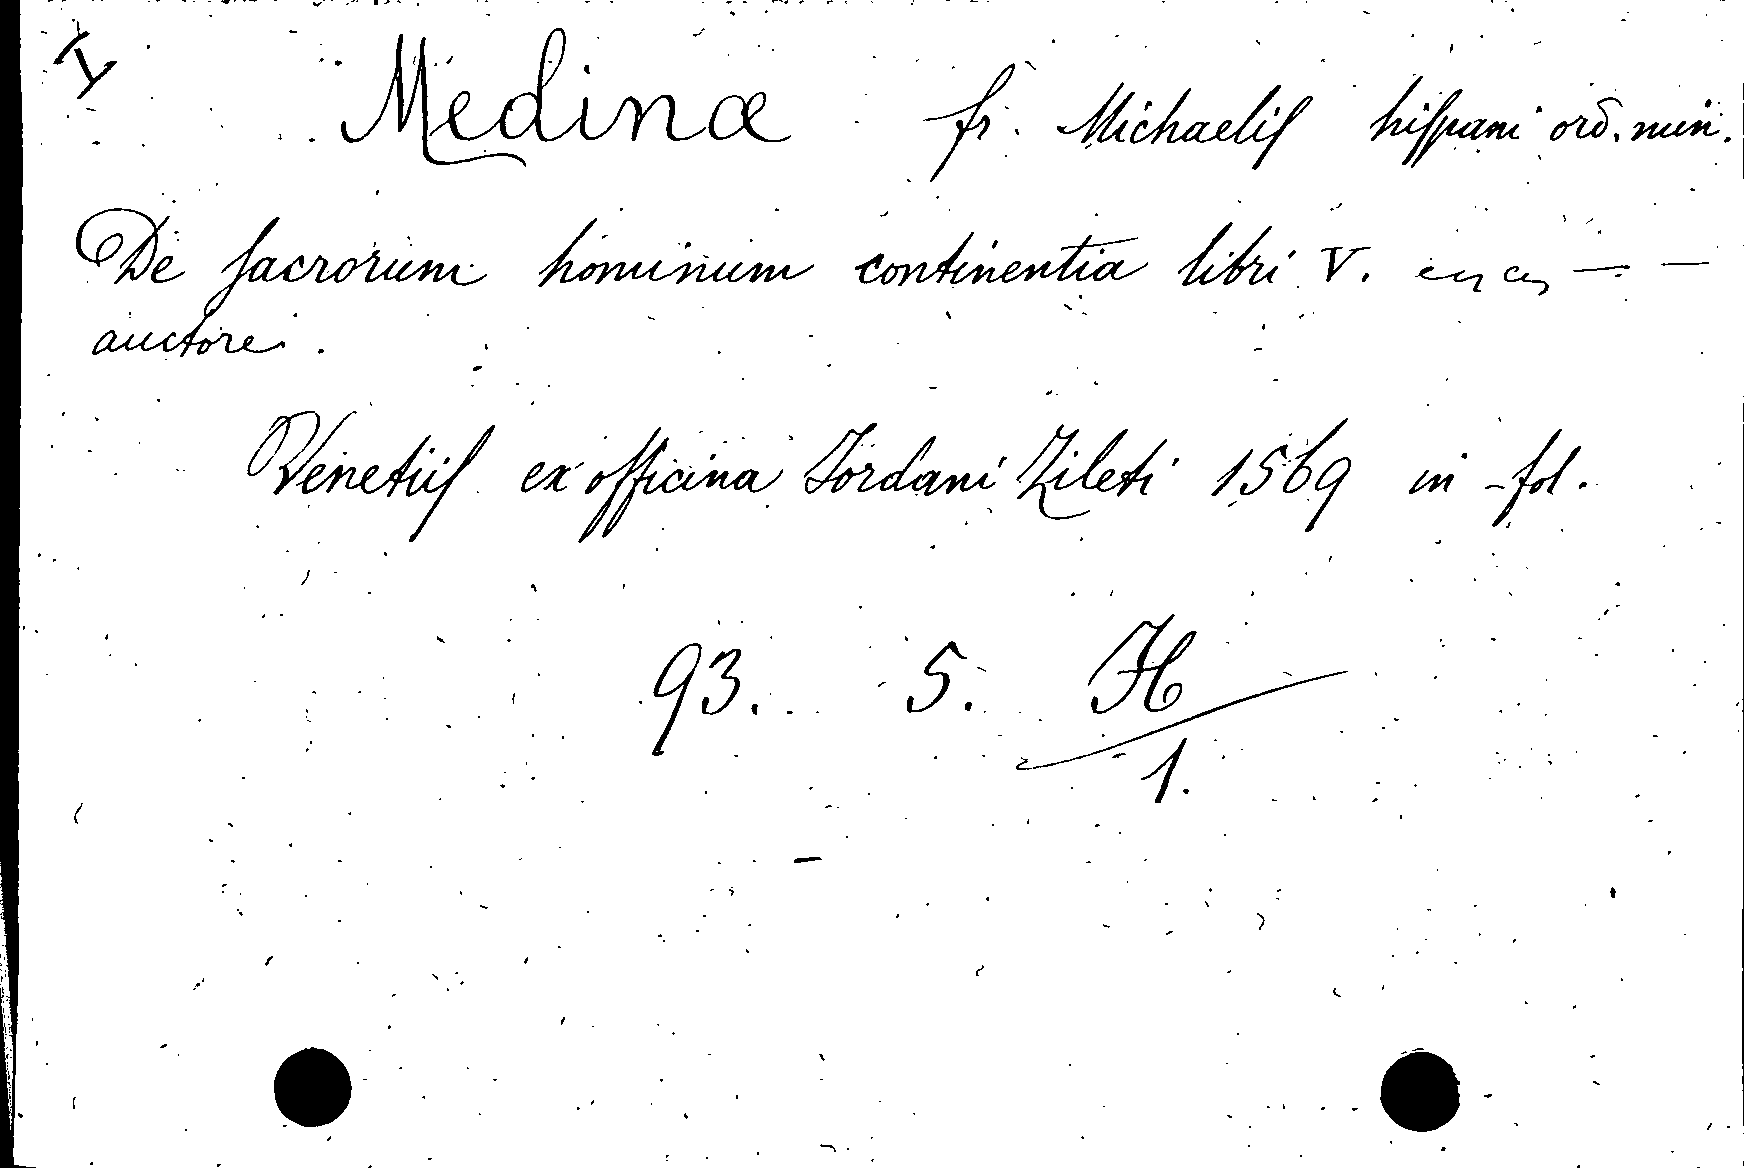 I
Medinæ fr. Michaelis hispani ord. min.
De sacrorum hominum continentia libri V.
auctore.
Venetiis ex officina Jordani Zileti 1569 in-fol.
93. 5. H
1.